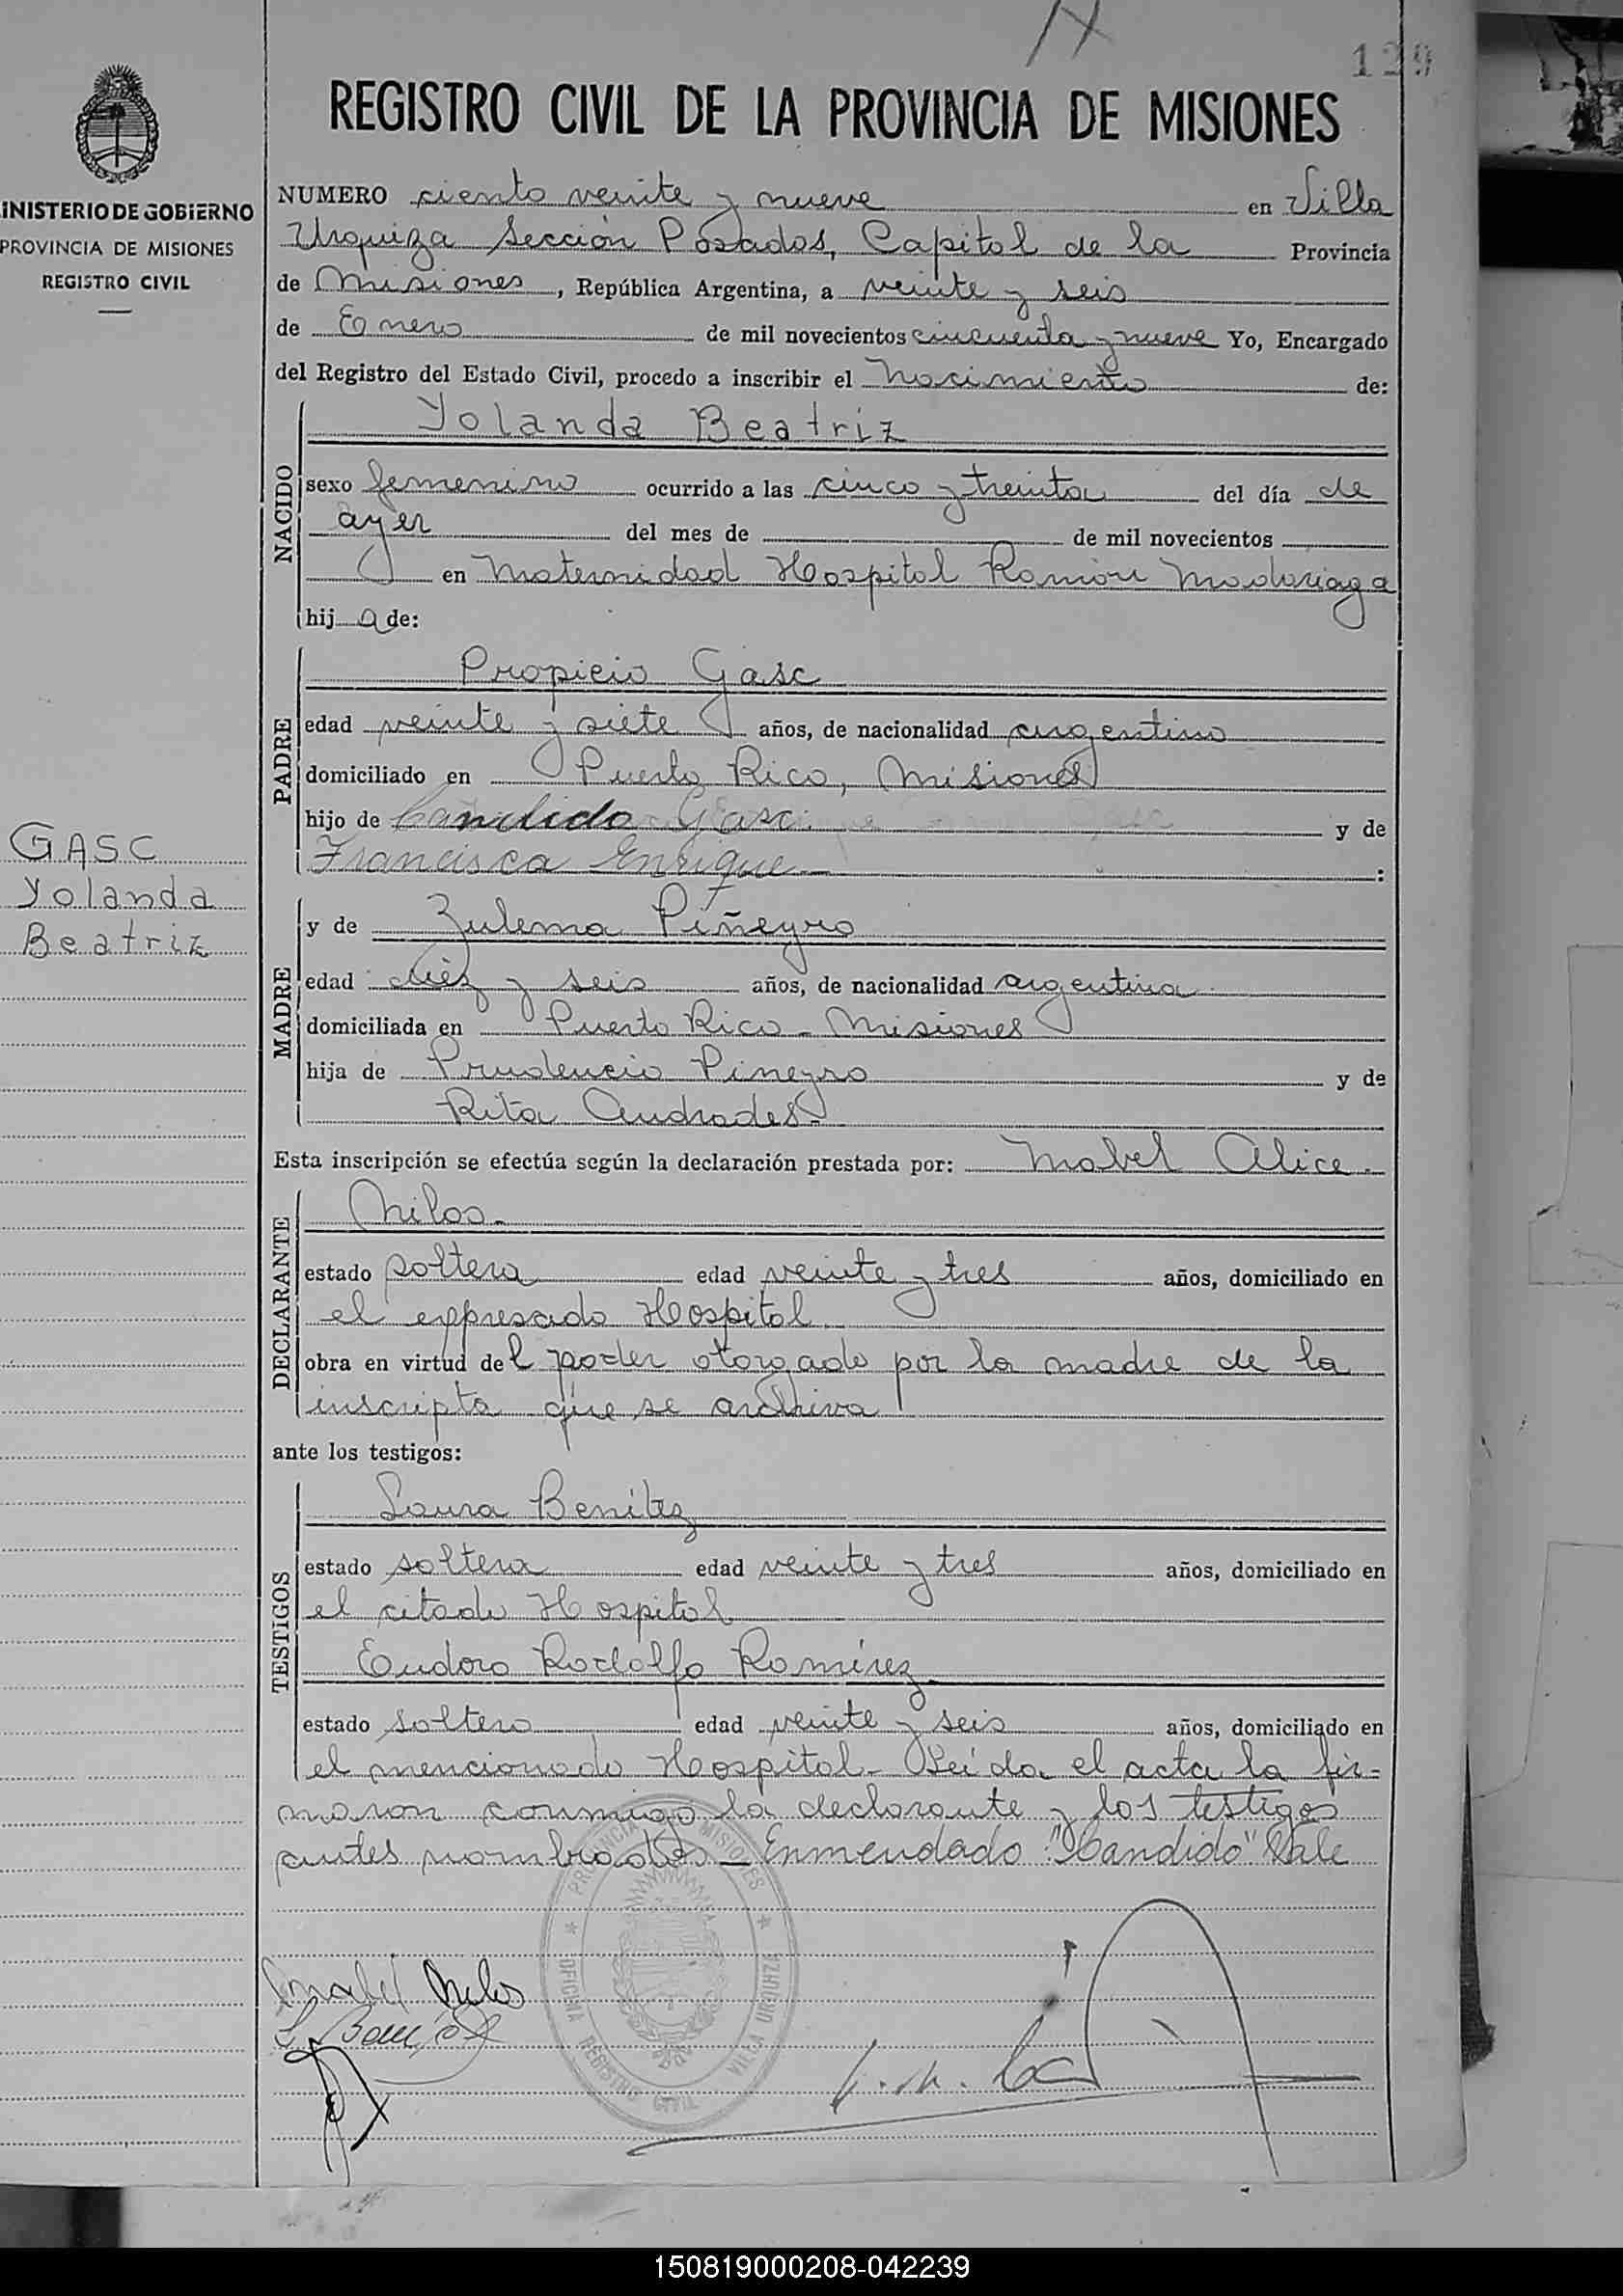 129
REGISTRO CIVIL DE LA PROVINCIA DE MISIONES
INISTERIO DE GOBIERNO
PROVINCIA DE MISIONES
REGISTRO CIVIL
NUMERO ciento veinte y nueve en Villa
Urquiza Sección Posadas, Capital de la Provincia
de Misiones, República Argentina, a veinte y seis
de Enero de mil novecientos cincuenta y nueve Yo, Encargado
del Registro del Estado Civil, procedo a inscribir el nacimiento de:
NACIDO
Yolanda Beatriz
sexo femenino ocurrido a las cinco y treinta del día de
ayer del mes de de mil novecientos
en Maternidad Hospital Ramón Madariaga
hija de:
PADRE
Propicio Gasc
edad veinte y siete años, de nacionalidad argentino
domiciliado en Puerto Rico, Misiones
hijo de Candido Gasc y de
Francisca Enrique :
GASC
Yolanda
Beatriz
MADRE
y de Zulema Piñeyro
edad diez y seis años, de nacionalidad argentina
domiciliada en Puerto Rico - Misiones
hija de Prudencio Pineyro y de
Rita Andrades.
Esta inscripción se efectúa según la declaración prestada por: Mabel Alice
DECLARANTE
Milos
estado soltera edad veinte y tres años, domiciliado en
el expresado Hospital
obra en virtud del poder otorgado por la madre de la
inscripta que se archiva
ante los testigos:
TESTIGOS
Laura Benitez
estado soltera edad veinte y tres años, domiciliado en
el citado Hospital
Eudoro Rodolfo Romírez
estado soltero edad veinte y seis años, domiciliado en
el mencionado Hospital - Leída el acta la fir=
maron conmigo la declarante y los testigos
antes nombrados - Enmendado "Candido" Vale
PROVINCIA DE MISIONES
OFICINA REGISTRO CIVIL VILLA URQUIZA
Mabel Milos
150819000208-042239